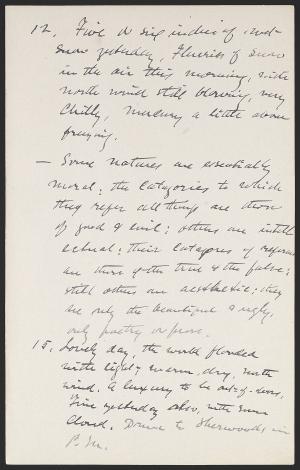 12. Five or six inches of wet
snow yesterday, Flurries of snow
in the air this morning, with
north wind still blowing, very
chilly, mercury a little above
freezing.
— Some natures are essentially
moral; the categories to which
they refer all things are those
of good & evil; others are intell
ectual; their categories of reference
are those of the true & the false;
still others are aesthetic; they
see only the beautiful & ugly,
only poetry or prose.
15. Lovely day, the world flooded
with light; warm, dry, north
wind. A luxury to be out-of-doors,
Fine yesterday also, with some
cloud. Drove to Sherwoods in
P.M.